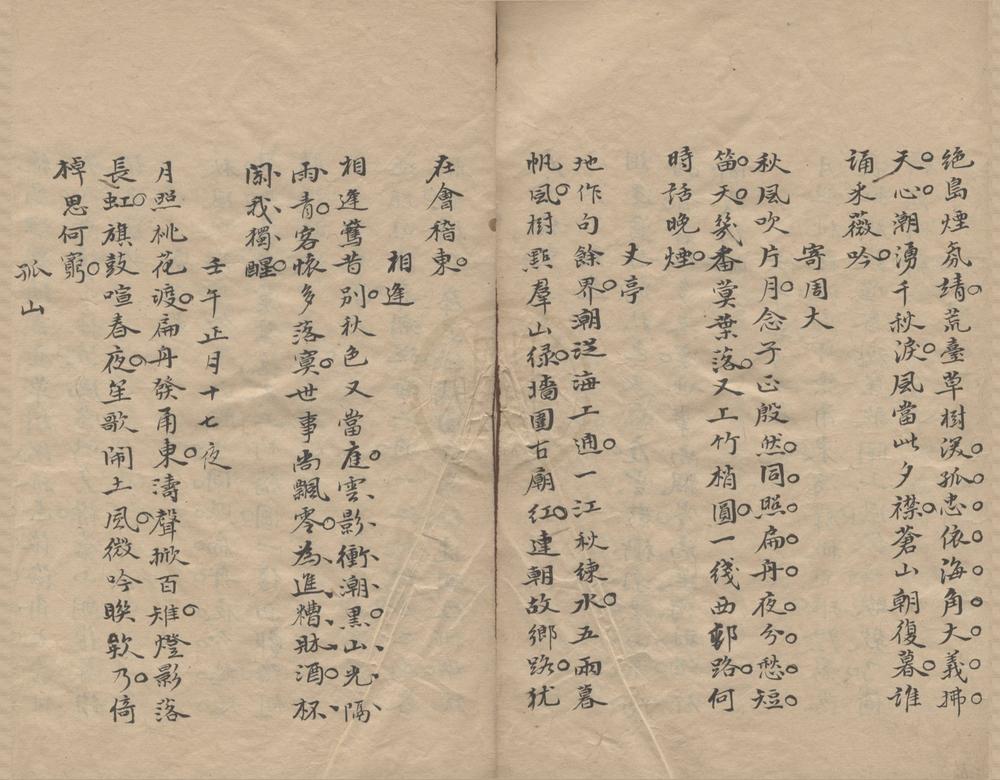 絶島煙氛靖荒臺草樹深孤忠依海角大義拂
天心潮湧千秋淚風當此夕襟蒼山朝復暮誰
誦采薇吟
寄周大
秋風吹片月念子正殷然同照扁舟夜分愁短
笛天幾番蓂葉落又上竹梢圓一綫西郵路何
時話晚煙
丈亭
地作句餘界潮從海上通一江秋練水五兩暮
帆風樹點羣山緑墻圍古廟紅建朝故鄉路犹
在會稽東
相逢
相逢驚昔別秋色又當庭雲影衝潮黒山光隔
雨青客懷多落寞世事尚飄零為進糟牀酒杯
闌我獨醒
壬午正月十七夜
月照桃花渡扁舟發甬東濤聲掀百雉燈影落
長虹旗鼓喧春夜笙歌鬧土風微吟聯欸乃倚
棹思何窮
孤山